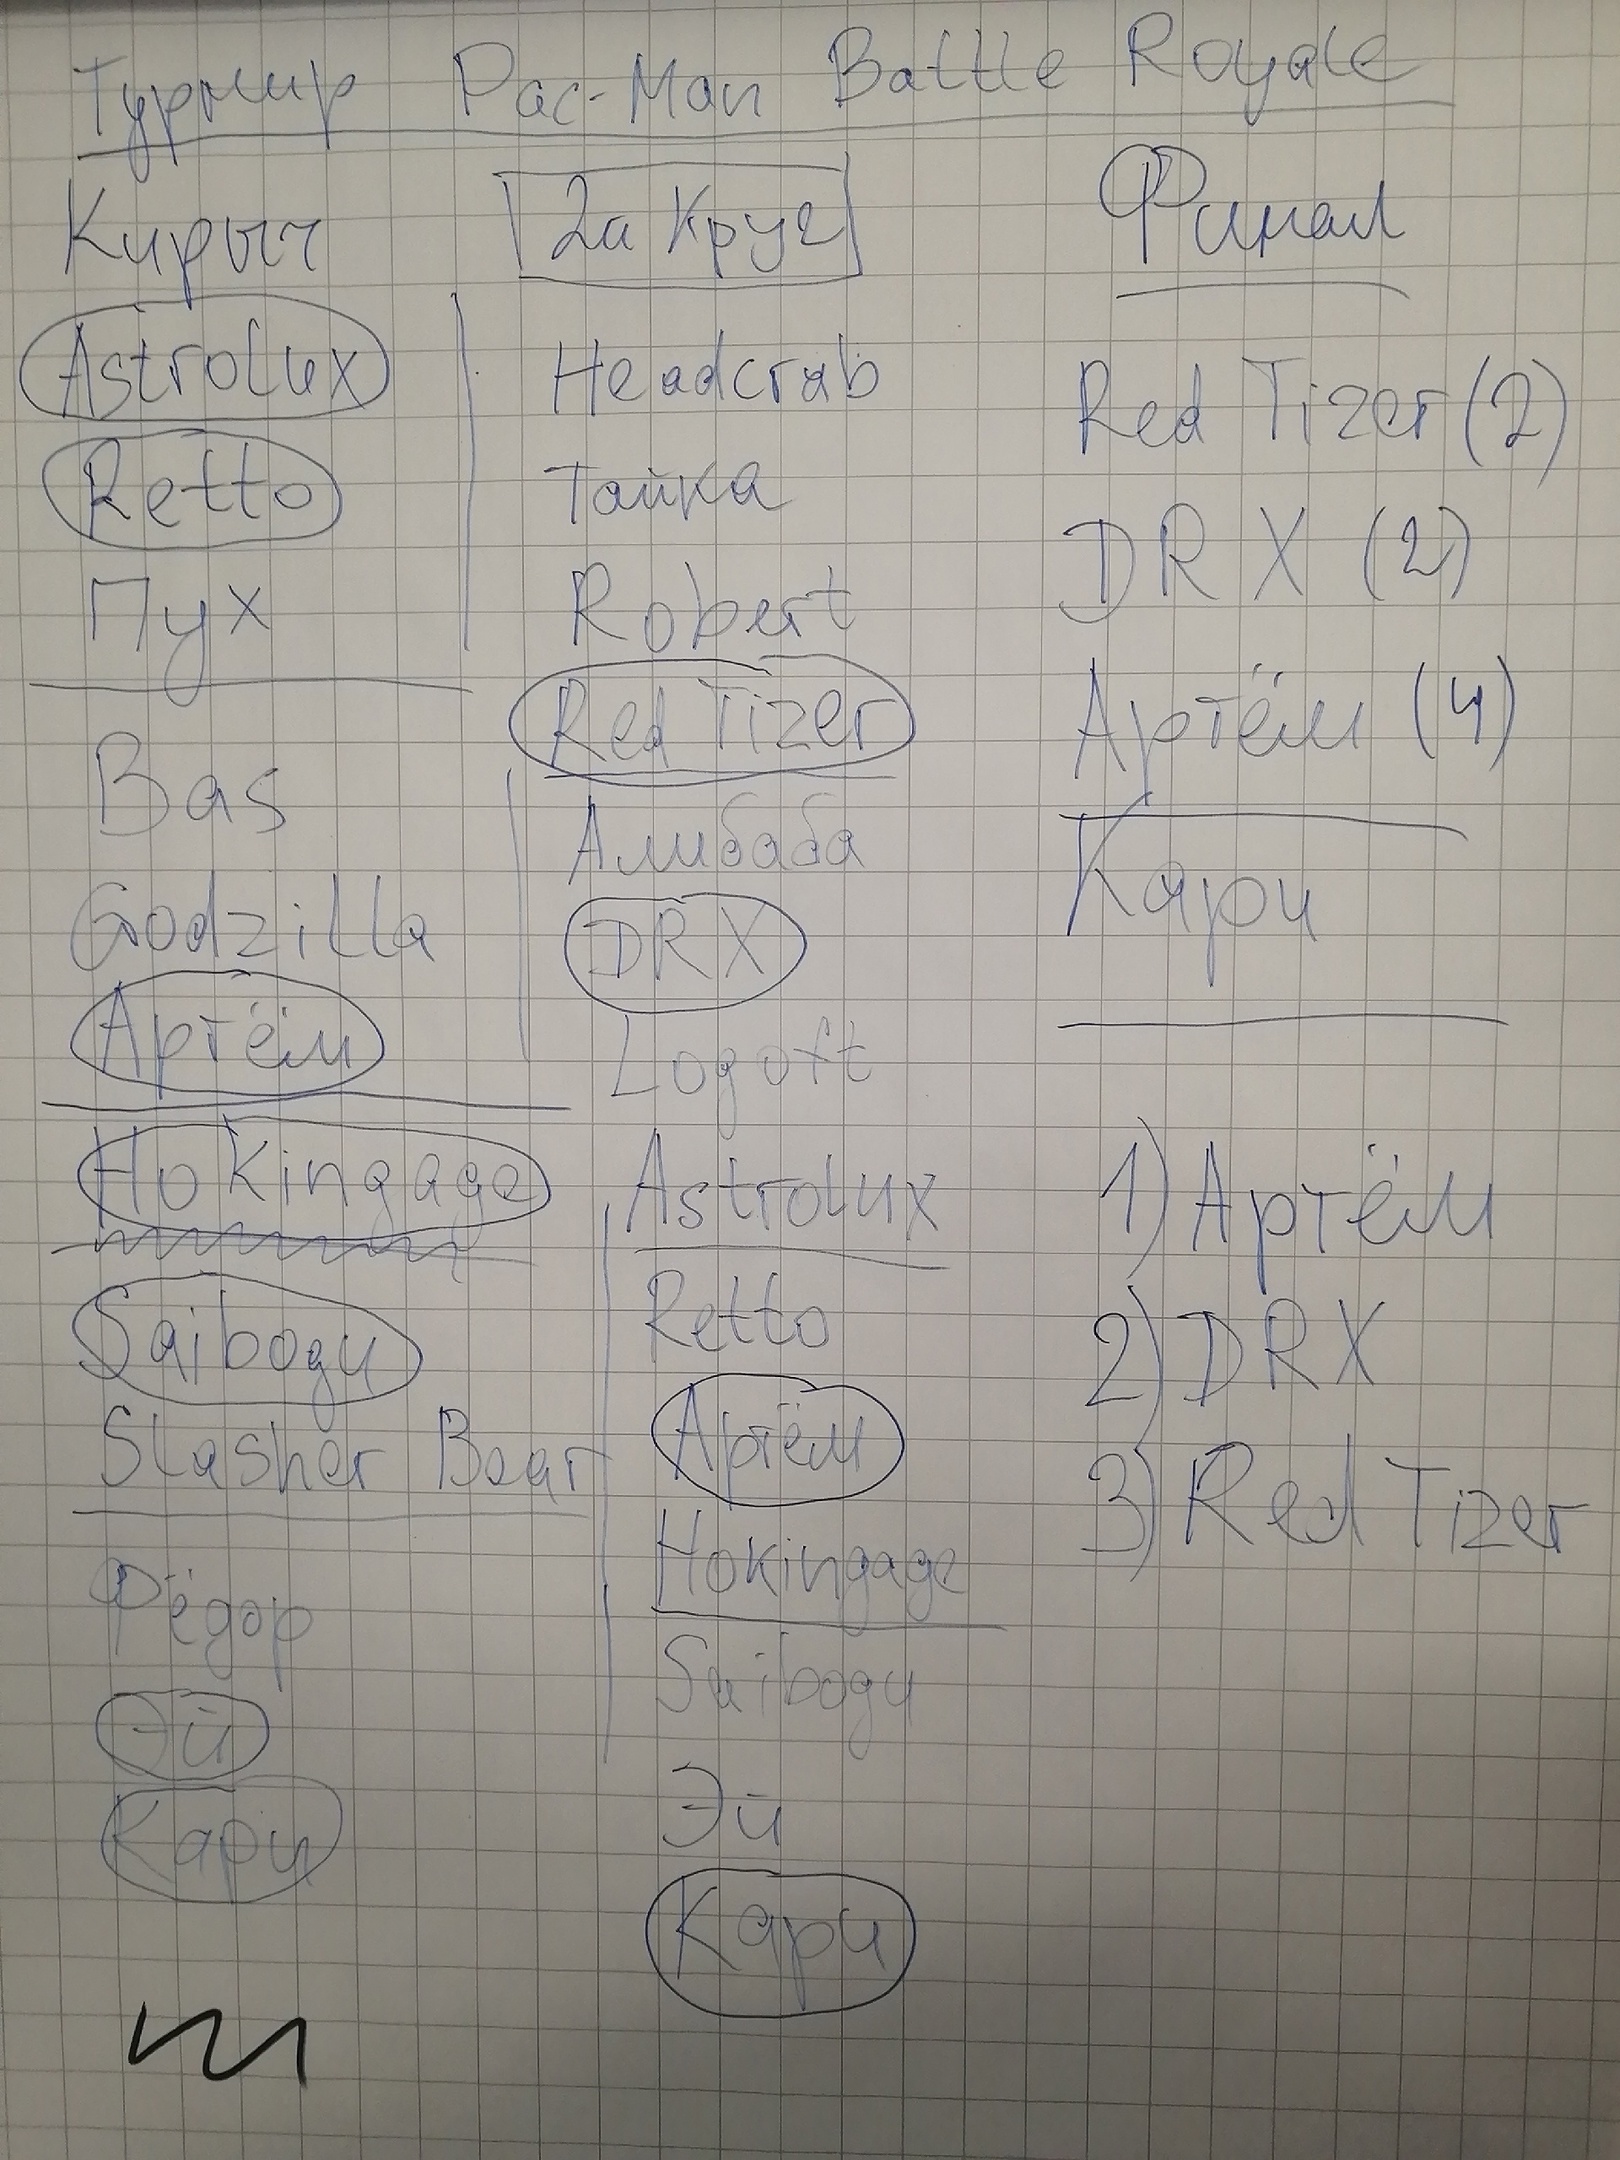 Турнир Pac-Man Battle Royale
Кирыч
Astrolux
Retto
Пух
Bas
Godzilla
Артём
Hokingage
Saibogu
Slasher Bear
Фёдор
Эй
Кари
2й Круг
Headcrab
Тайка
Robert
Red Tizer
Алибаба
DRX
Logoft
Astrolux
Retto
Артём
Hokingage
Saibogu
Эй
Кари
Финал
Red Tizer (2)
DRX (2)
Артём (4)
Кари
1) Артём
2) DRX
3) Red Tizer